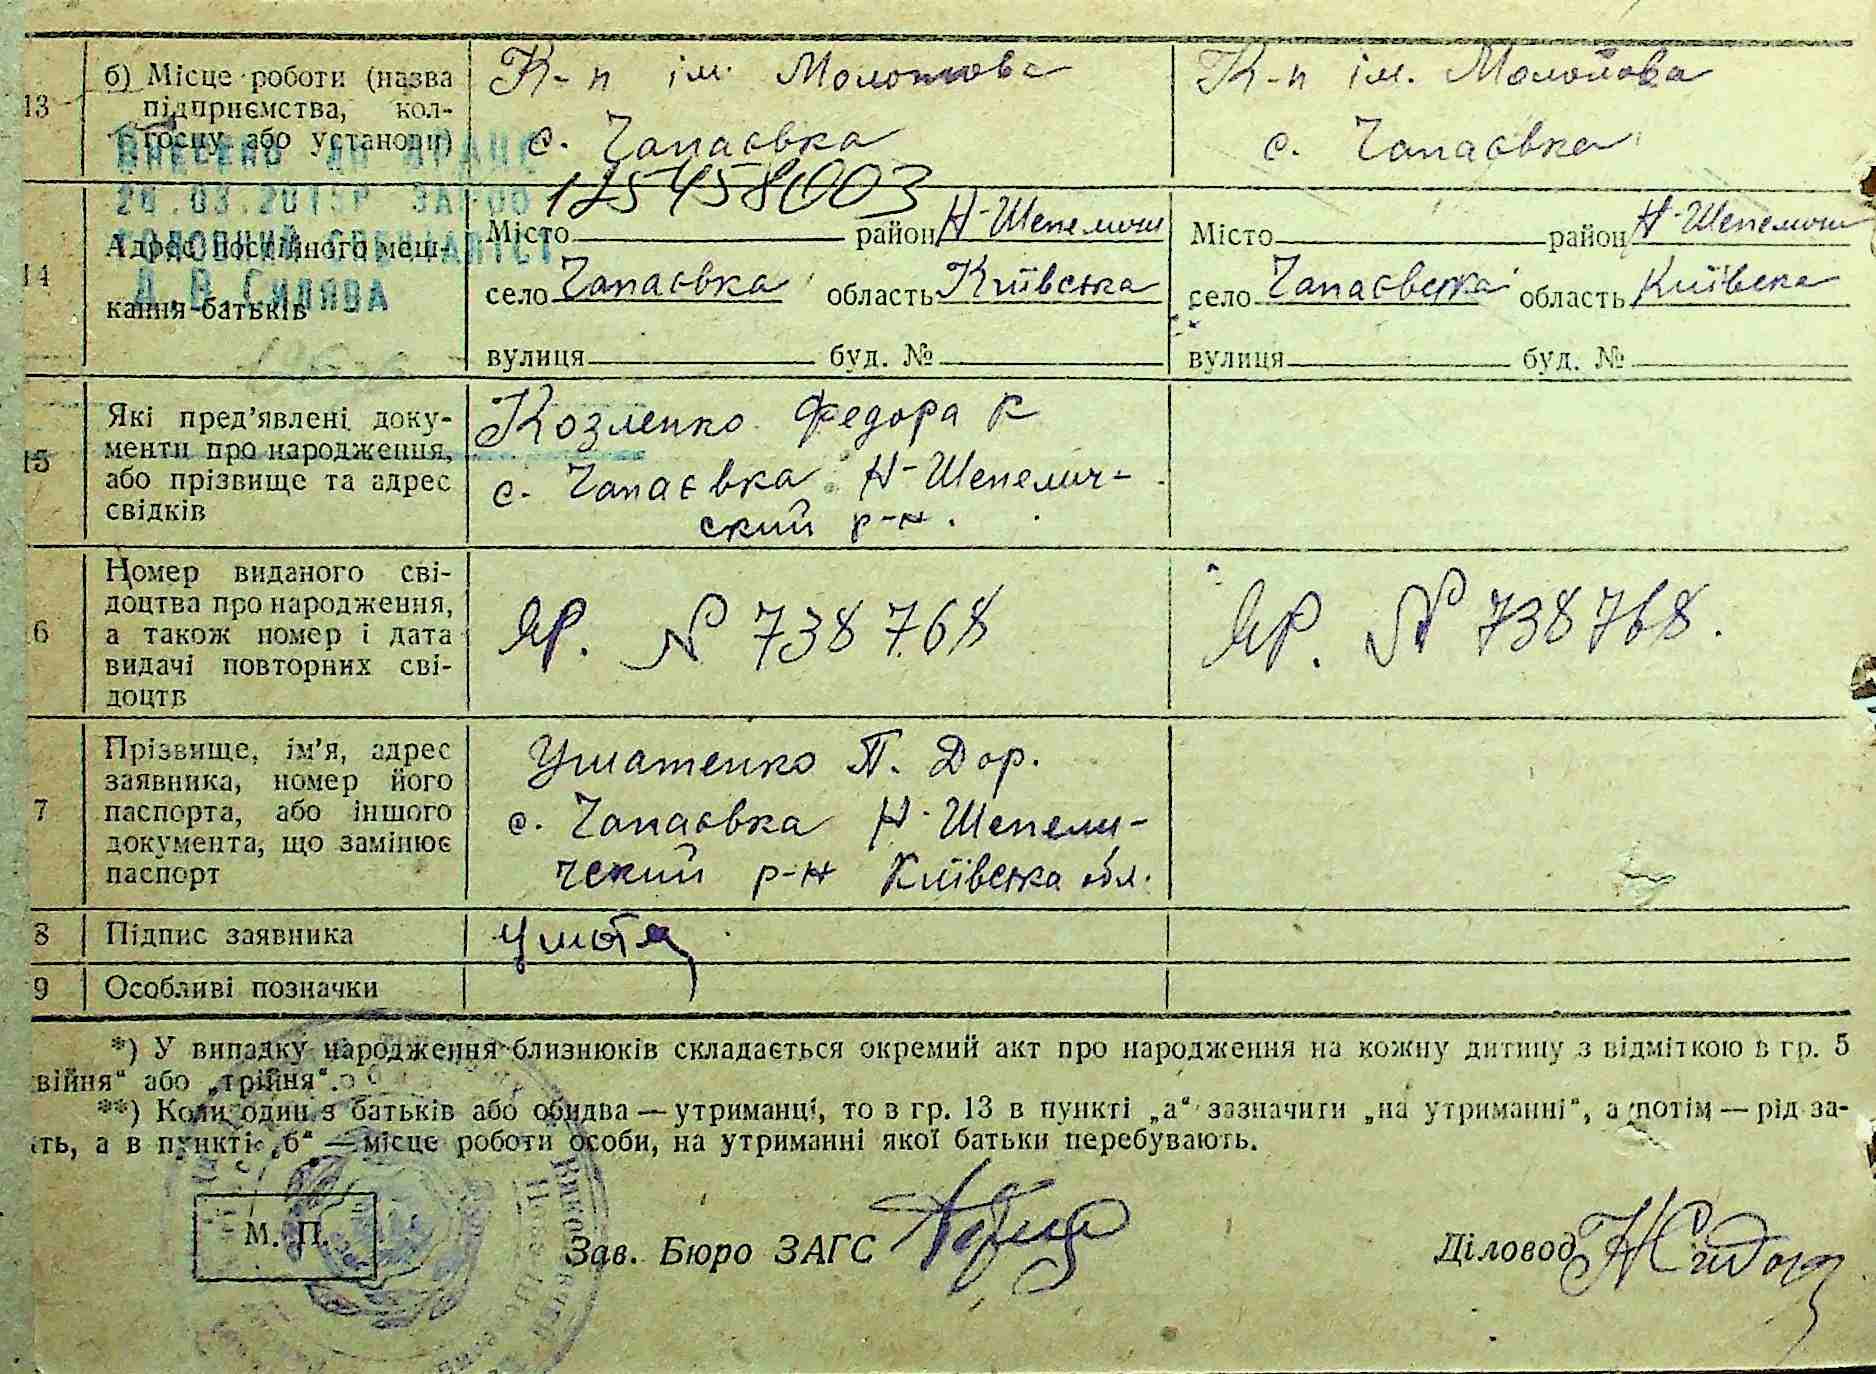 13
б) Місце роботи (назва
підприємства, кол-
госпу або установи)
К-п ім. Молотова
с. Чапаєвка
К-п ім. Молотова
с. Чапаєвка
ВНЕСЕНО ДО ДРАЦС
26.03.2013Р
ГОЛОВНИЙ СПЕЦІАЛІСТ
125458003
14
Адрес постійного меш-
кання батьків
Місто район Н-Шепелични
село Чапаєвка область Київська
вулиця буд. №
Місто район Н-Шепелични
село Чапаєвка область Київска
вулиця буд. №
15
Які пред’явлені доку-
менти про народження,
або прізвище та адрес
свідків
Козленко Федора К
с. Чапаєвка Н-Шепелич-
ский р-н.
6
Номер виданого сві-
доцтва про народження,
а також номер і дата
видачі повторних сві-
доцтв
ЯР. № 738768
ЯР. № 738768.
7
Прізвище, ім’я, адрес
заявника, номер його
паспорта, або іншого
документа, що замінює
паспорт
Уматенко П. Дор.
с. Чапаєвка Н-Шепели-
ческий р-н Київська обл.
8
Підпис заявника
9
Особливі позначки
*) У випадку народження близнюків складається окремий акт про народження на кожну дитину з відміткою в гр. 5
війня“ або „трійня“.
**) Коли один з батьків або обидва — утриманці, то в гр. 13 в пункті „а“ зазначити „на утриманні“, а потім — рід за-
ть, а в пункті „б“ — місце роботи особи, на утриманні якої батьки перебувають.
М. П.
Зав. Бюро ЗАГС
Діловод